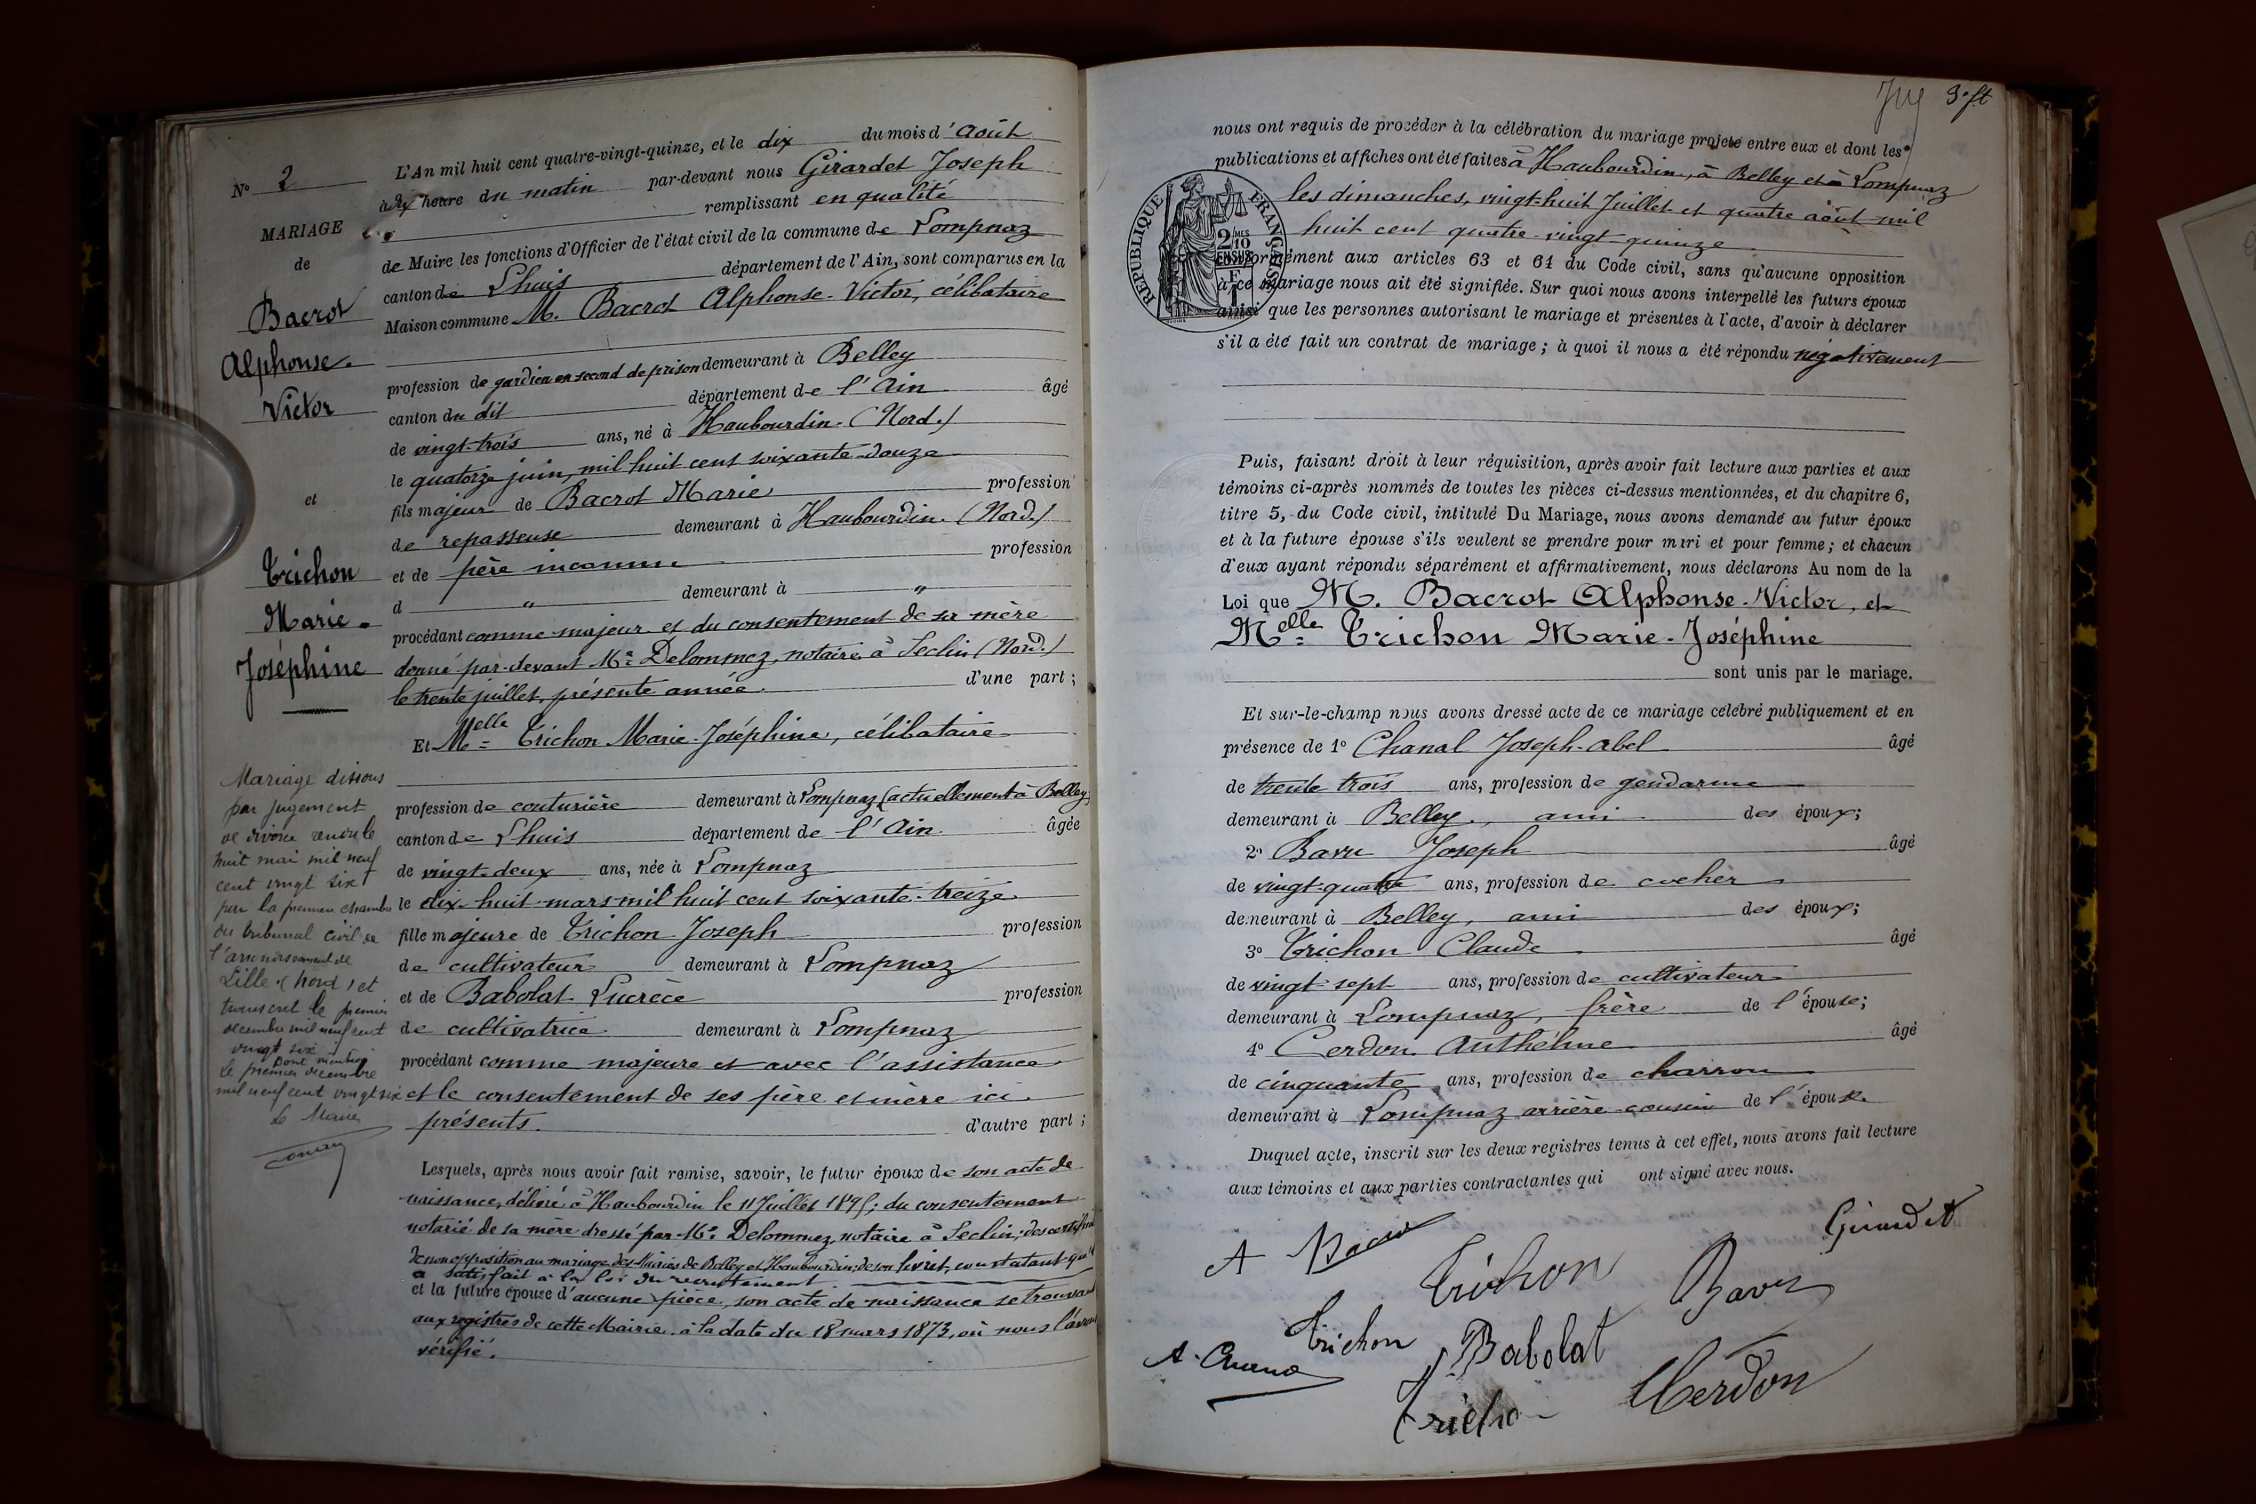 N° 2
MARIAGE
de
Bacrot
Alphonse-
Victor
et
Trichon
Marie-
Joséphine
Mariage dissous
par jugement
de divorce rendu le
huit mai mil neuf
cent vingt six
par la première chambre
du tribunal civil de
l'arrondissement de
Lille (Nord) et
transcrit le premier
décembre mil neuf cent
vingt six
Dont mention
Le premier décembre
mil neuf cent vingt six
Le Maire
L'An mil huit cent quatre-vingt-quinze, et le dix du mois d'Août
à dix heure du matin par-devant nous Girardet Joseph
remplissant en qualité
de Maire les fonctions d'Officier de l'état civil de la commune de Lompnaz
canton de Lhuis département de l'Ain, sont comparus en la
Maison commune M. Bacrot Alphonse-Victor, célibataire
profession de gardien en second de prison demeurant à Belley
canton du dit département de l'Ain âgé
de vingt-trois ans, né à Haubourdin (Nord.)
le quatorze juin, mil huit cent soixante-douze
fils majeur de Bacrot Marie profession
de repasseuse demeurant à Haubourdin. (Nord.)
et de père inconnu profession
d " demeurant à "
procédant comme majeur et du consentement de sa mère
donné par-devant Me Delommez, notaire à Seclin (Nord.)
le trente juillet, présente année. d'une part ;
Et Melle Trichon Marie-Joséphine, célibataire
profession de couturière demeurant à Lompnaz (actuellement à Belley)
canton de Lhuis département de l'Ain âgée
de vingt-deux ans, née à Lompnaz
le dix-huit mars mil huit cent soixante-treize
fille majeure de Trichon Joseph profession
de cultivateur demeurant à Lompnaz
et de Babolat Lucrèce profession
de cultivatrice demeurant à Lompnaz
procédant comme majeure et avec l'assistance
et le consentement de ses père et mère ici
présents. d'autre part ;
Lesquels, après nous avoir fait remise, savoir, le futur époux de son acte de
naissance, délivré à Haubourdin le 11 Juillet 1895; du consentement
notarié de sa mère dressé par Me Delommez, notaire à Seclin; des certificats
de non opposition au mariage des Mairies de Belley et Haubourdin; de son livret, constatant qu'il
a satisfait à la loi du recrutement.
et la future épouse d'aucune pièce, son acte de naissance se trouvant
aux registres de cette Mairie à la date du 18 mars 1873, où nous l'avons
vérifié.
nous ont requis de procéder à la célébration du mariage projeté entre eux et dont les
publications et affiches ont été faites à Haubourdin, à Belley et à Lompnaz
les dimanches, vingt-huit Juillet et quatre août mil
huit cent quatre-vingt-quinze
RÉPUBLIQUE FRANÇAISE
2/10 MES
EN SUS
1 F
conformément aux articles 63 et 64 du Code civil, sans qu'aucune opposition
à ce mariage nous ait été signifiée. Sur quoi nous avons interpellé les futurs époux
ainsi que les personnes autorisant le mariage et présentes à l'acte, d'avoir à déclarer
s'il a été fait un contrat de mariage ; à quoi il nous a été répondu négativement
Puis, faisant droit à leur réquisition, après avoir fait lecture aux parties et aux
témoins ci-après nommés de toutes les pièces ci-dessus mentionnées, et du chapitre 6,
titre 5, du Code civil, intitulé Du Mariage, nous avons demandé au futur époux
et à la future épouse s'ils veulent se prendre pour mari et pour femme ; et chacun
d'eux ayant répondu séparément et affirmativement, nous déclarons Au nom de la
Loi que M. Bacrot Alphonse-Victor, et
Melle Trichon Marie-Joséphine
sont unis par le mariage.
Et sur-le-champ nous avons dressé acte de ce mariage célébré publiquement et en
présence de 1° Chanal Joseph-Abel âgé
de trente trois ans, profession de gendarme
demeurant à Belley, ami des époux;
2° Bavu Joseph âgé
de vingt-quatre ans, profession de cocher
demeurant à Belley, ami des époux;
3° Trichon Claude âgé
de vingt-sept ans, profession de cultivateur
demeurant à Lompnaz, frère de l'épouse;
4° Cerdon Anthelme âgé
de cinquante ans, profession de charron
demeurant à Lompnaz arrière-cousin de l'épouse.
Duquel acte, inscrit sur les deux registres tenus à cet effet, nous avons fait lecture
aux témoins et aux parties contractantes qui ont signé avec nous.
Girardet
A Bacrot
Trichon
Bavu
Trichon
Babolat
Cerdon
Trichon